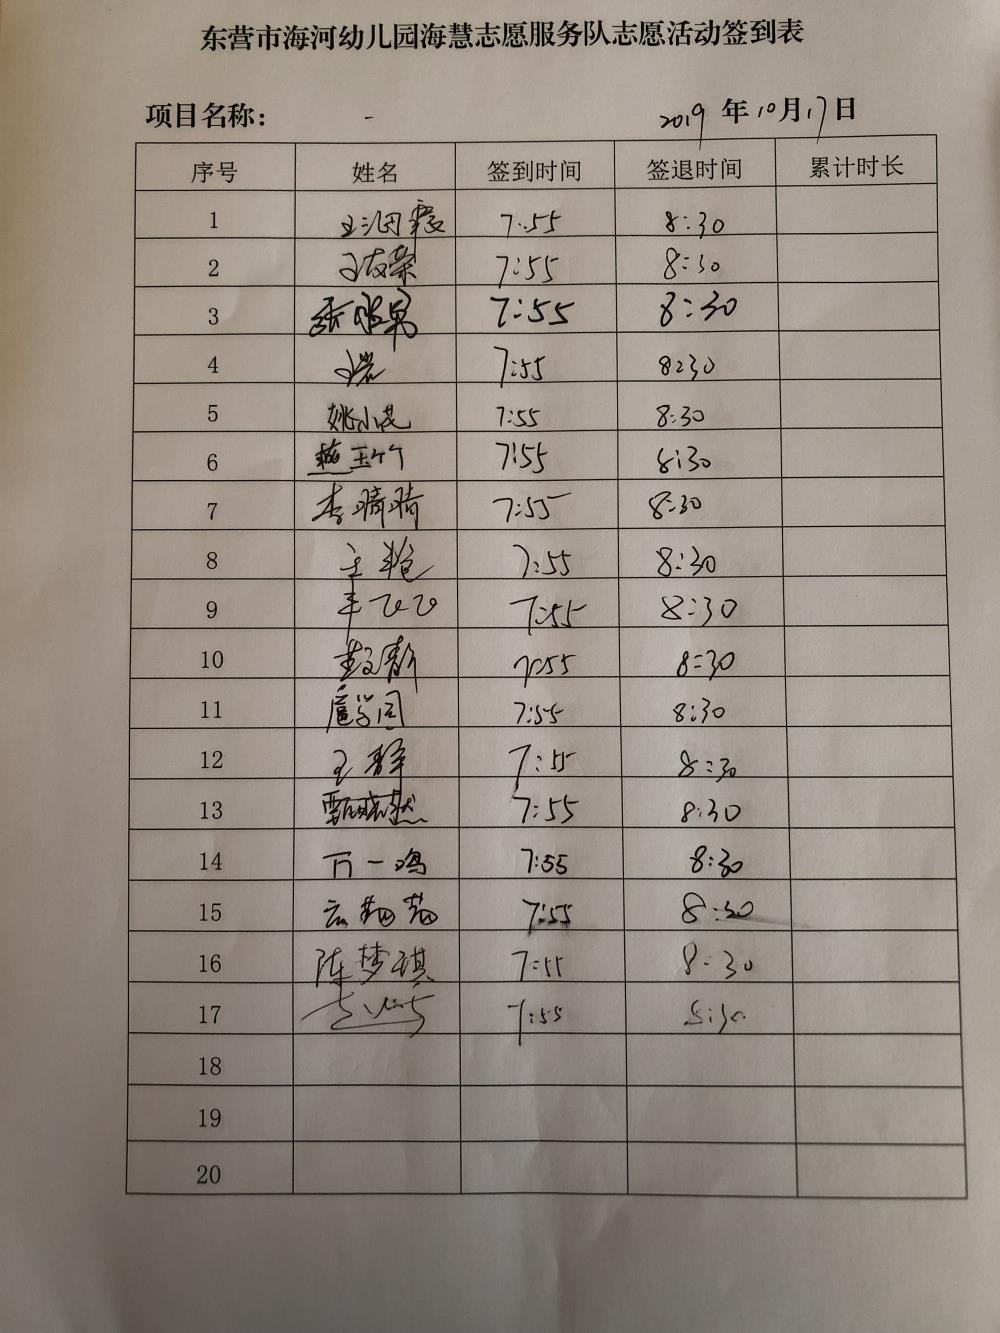 东营市海河幼儿园海慧志愿服务队志愿活动签到表
项目名称: - 2019 年 10 月 17 日
序号 姓名 签到时间 签退时间 累计时长
1 7:55 8:30
2 王友荣 7:55 8:30
3 7:55 8:30
4 7:55 8:30
5 姚小 7:55 8:30
6 燕玉竹 7:55 8:30
7 李晴晴 7:55 8:30
8 王艳 7:55 8:30
9 7:55 8:30
10 赵静 7:55 8:30
11 7:55 8:30
12 王静 7:55 8:30
13 7:55 8:30
14 万一鸣 7:55 8:30
15 7:55 8:30
16 陈梦琪 7:55 8:30
17 7:55 8:30
18
19
20